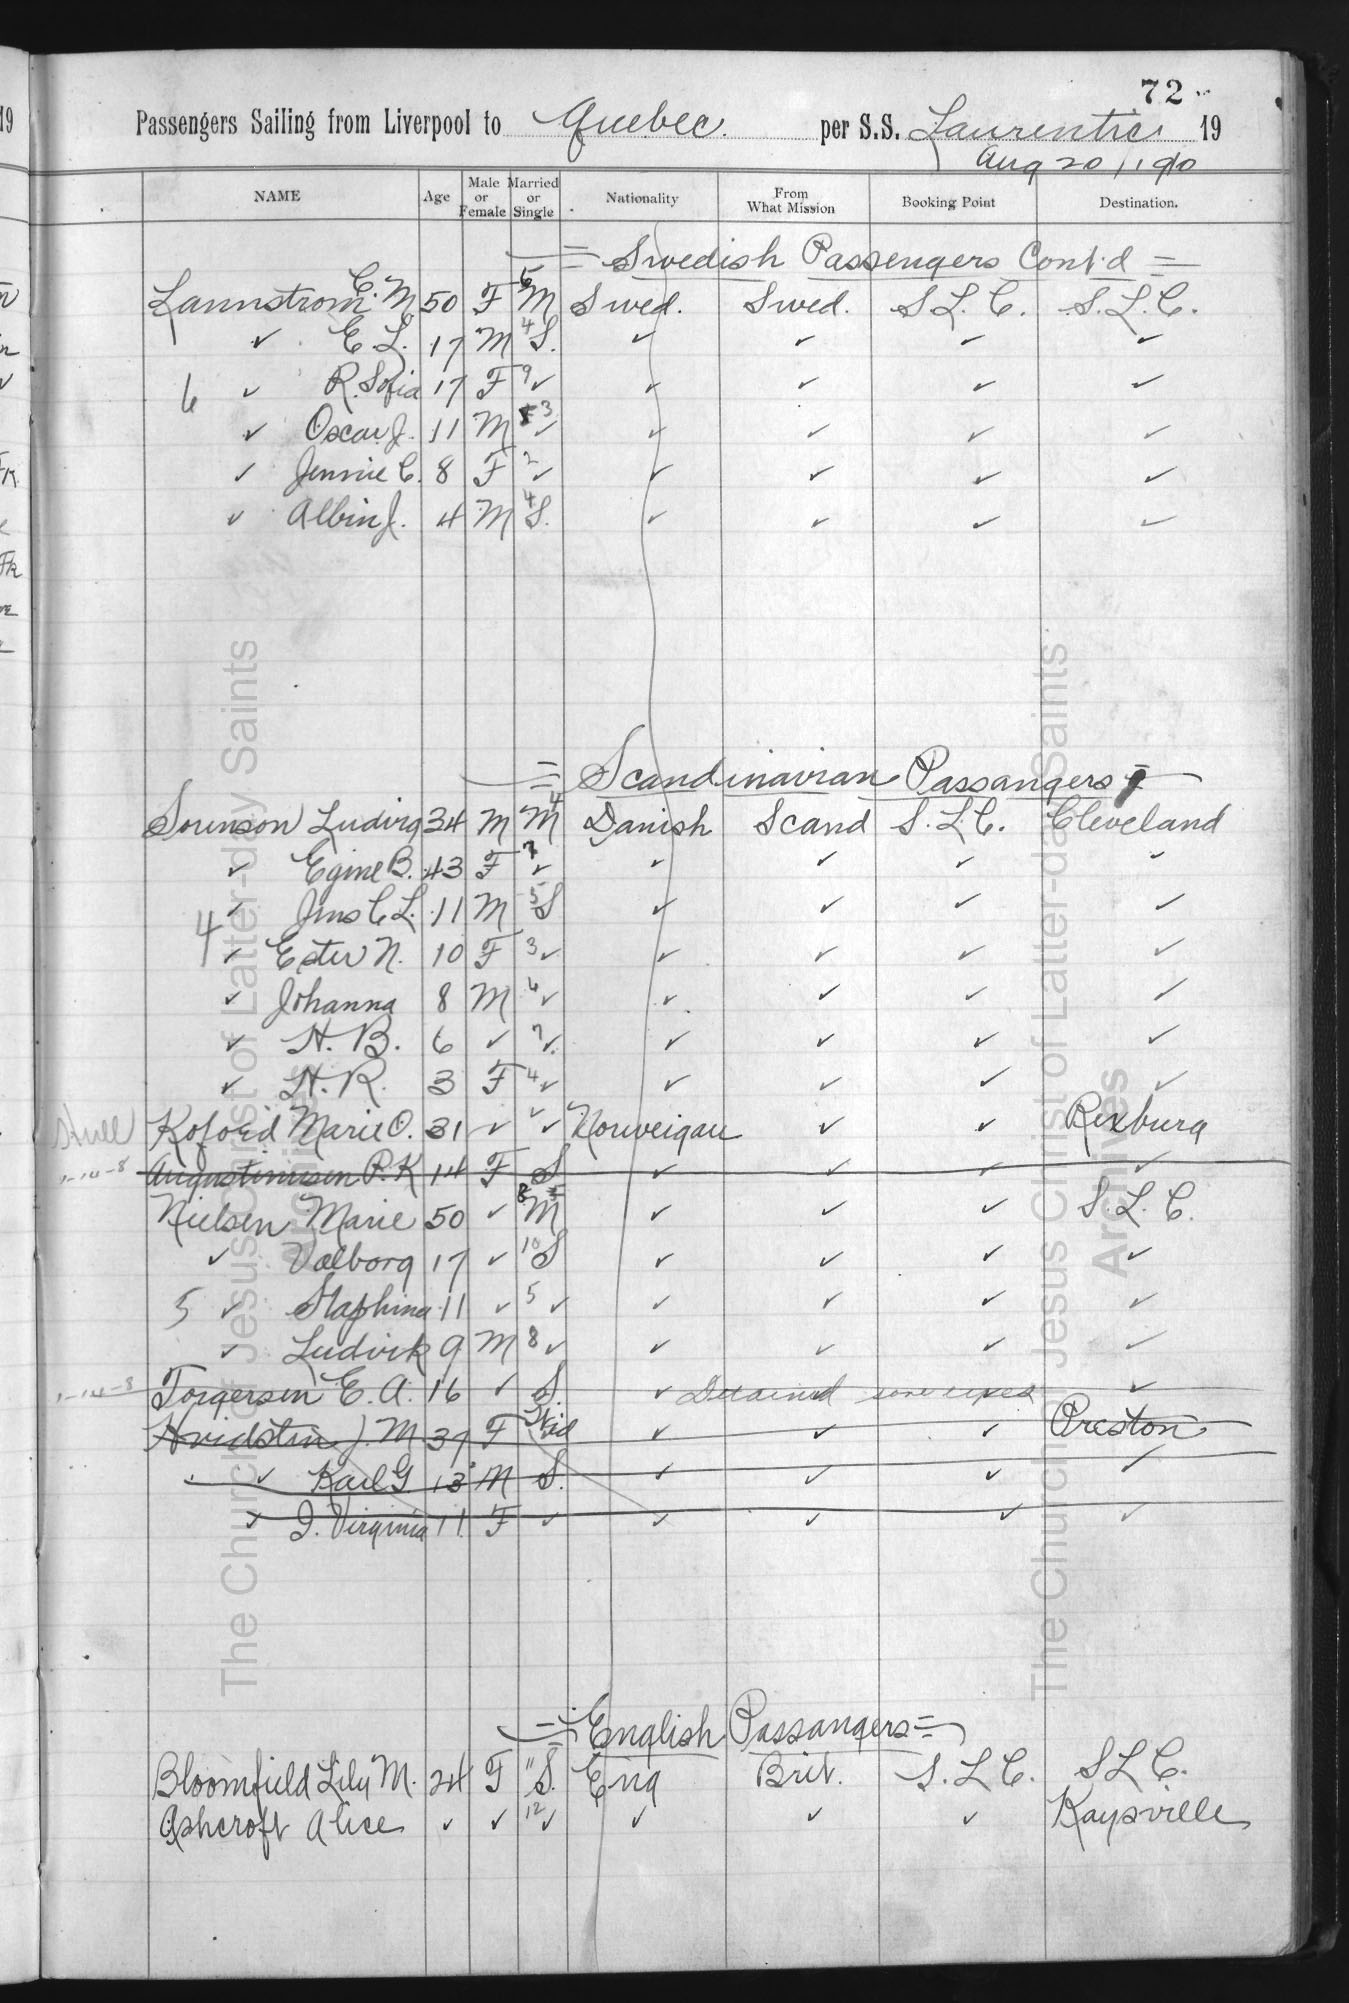 72
Passengers Sailing from Liverpool to Quebec. per S.S. Laurentic 19
Aug 20/1910
NAME Age Male or Female Married or Single Nationality From What Mission Booking Point Destination.
= Swedish Passengers Cont'd =
Lannstrom E. M 50 F M Swed. Swed. S. L. C. S. L. C.
✓ E L. 17 M 4 S. ✓ ✓ ✓ ✓
6 ✓ R. Sofia 17 F 9 ✓ ✓ ✓ ✓ ✓
✓ Oscar J. 11 M 3 ✓ ✓ ✓ ✓ ✓
✓ Jennie C. 8 F 2 ✓ ✓ ✓ ✓ ✓
✓ Albin J. 4 M 4 S. ✓ ✓ ✓ ✓
= Scandinavian Passangers =
Sorenson Ludvig 34 M 4 M Danish Scand S. L. C. Cleveland
✓ Egine B. 43 F 7 ✓ ✓ ✓ ✓ ✓
✓ Jens C L. 11 M 5 S ✓ ✓ ✓ ✓
4 ✓ Ester N. 10 F 3 ✓ ✓ ✓ ✓ ✓
✓ Johanna 8 M ✓ ✓ ✓ ✓ ✓
✓ H. B. 6 ✓ 7 ✓ ✓ ✓ ✓ ✓
✓ H. R. 3 F 4 ✓ ✓ ✓ ✓ ✓
Hull Kofoed Marie O. 31 ✓ ✓ ✓ Norweigan ✓ ✓ Rexburg
1-14-8 Augustinusen P. K 14 F S ✓ ✓ ✓ ✓
Nielsen Marie 50 ✓ 8 M ✓ ✓ ✓ S. L. C.
✓ Valborg 17 ✓ 10 S ✓ ✓ ✓ ✓
5 ✓ Staphina 11 ✓ 5 ✓ ✓ ✓ ✓ ✓
✓ Ludvik 9 M 8 ✓ ✓ ✓ ✓ ✓
1-14-8 Torgersen E. A. 16 ✓ S. ✓ Detained sore eyes ✓
Hvidsten J. M. 39 F Wid ✓ ✓ ✓ Preston
✓ Karl G. 13 M S. ✓ ✓ ✓ ✓
✓ I. Virginia 11 F ✓ ✓ ✓ ✓ ✓
= English Passangers =
Bloomfield Lily M. 24 F 11 S. Eng Brit. S. L C. S L C.
Ashcroft Alice ✓ ✓ 12 ✓ ✓ ✓ ✓ Kaysville
The Church of Jesus Christ of Latter-day Saints
Archives
The Church of Jesus Christ of Latter-day Saints
Archives